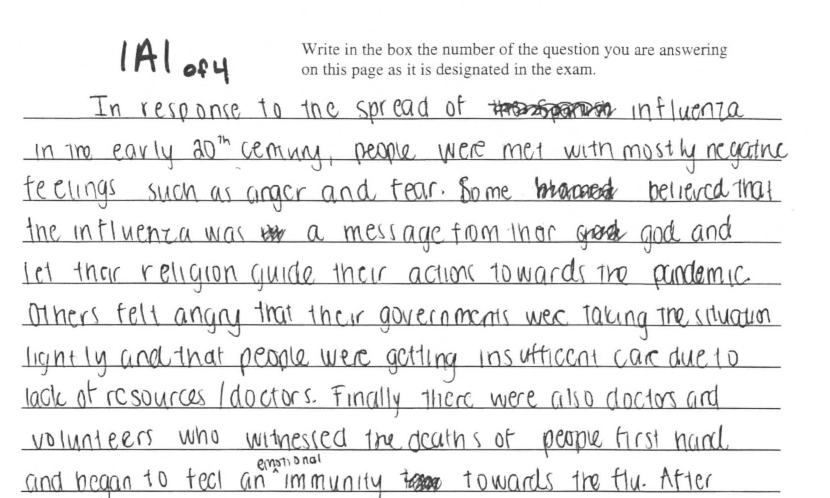 1A1 of 4
Write in the box the number of the question you are answering
on this page as it is designated in the exam.
In response to the spread of influenza
in the early 20th century, people were met with mostly negative
feelings such as anger and fear. Some believed that
the influenza was a message from their god and
let their religion guide their actions towards the pandemic.
Others felt angry that their governments were taking the situation
lightly and that people were getting insufficent care due to
lack of resources / doctors. Finally there were also doctors and
volunteers who witnessed the deaths of people first hand
and began to feel an emotional immunity towards the flu. After